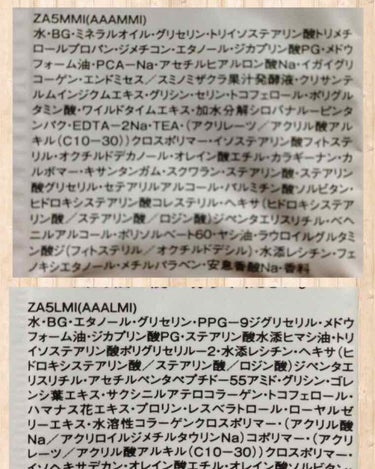 ZA5MMI(AAAMMI)
水・BG・ミネラルオイル・グリセリン・トリイソステアリン酸トリメチ
ロールプロパン・ジメチコン・エタノール・ジカプリン酸PG・メドウ
フォーム油・PCA-Na・アセチルヒアルロン酸Na・イガイグリ
コーゲン・エンドミセス／スミノミザクラ果汁発酵液・クリサンテ
ルムインジクムエキス・グリシン・セリン・トコフェロール・ポリグル
タミン酸・ワイルドタイムエキス・加水分解シロバナルーピンタ
ンパク・EDTA-2Na・TEA・(アクリレーツ／アクリル酸アル
キル(C10-30))クロスポリマー・イソステアリン酸フィトステ
リル・オクチルドデカノール・オレイン酸エチル・カラギーナン・カ
ルボマー・キサンタンガム・スクワラン・ステアリン酸・ステアリン
酸グリセリル・セテアリルアルコール・パルミチン酸ソルビタン・
ヒドロキシステアリン酸コレステリル・ヘキサ(ヒドロキシステア
リン酸／ステアリン酸／ロジン酸)ジペンタエリスリチル・ベヘ
ニルアルコール・ポリソルベート60・ヤシ油・ラウロイルグルタ
ミン酸ジ(フィトステリル／オクチルドデシル)・水添レシチン・フェ
ノキシエタノール・メチルパラベン・安息香酸Na・香料
ZA5LMI(AAALMI)
水・BG・エタノール・グリセリン・PPG-9ジグリセリル・メドウ
フォーム油・ジカプリン酸PG・ステアリン酸水添ヒマシ油・トリ
イソステアリン酸ポリグリセリル-2・水添レシチン・ヘキサ(ヒ
ドロキシステアリン酸／ステアリン酸／ロジン酸)ジペンタエ
リスリチル・アセチルペンタペプチド-55アミド・グリシン・ゴレ
ンシ葉エキス・サクシニルアテロコラーゲン・トコフェロール・
ハマナス花エキス・プロリン・レスベラトロール・ローヤルゼ
リーエキス・水溶性コラーゲンクロスポリマー・(アクリル酸
Na／アクリロイルジメチルタウリンNa)コポリマー・(アクリ
レーツ／アクリル酸アルキル(C10-30))クロスポリマー・
イソヘキサデカン・オレイン酸エチル・オレイン酸ソルビタン・